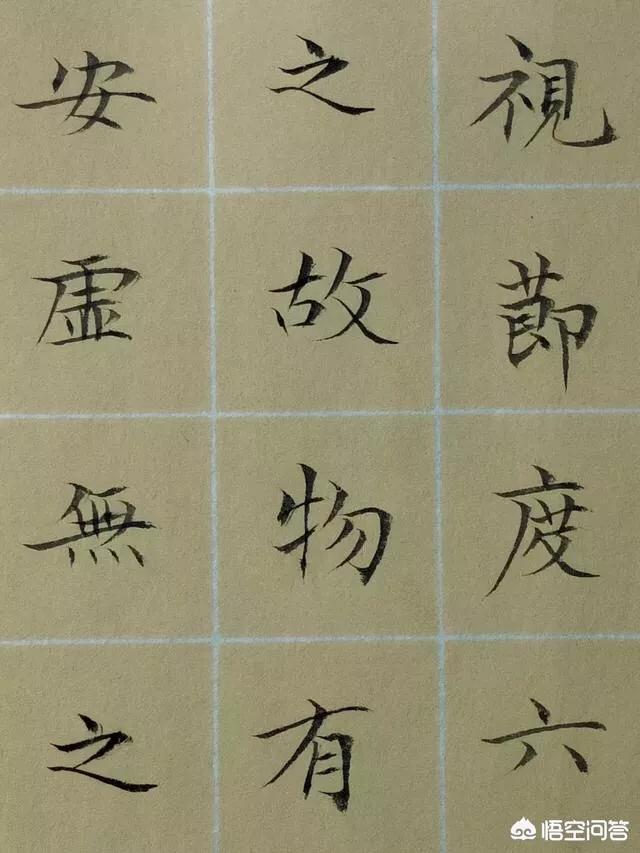 視節度六
之故物有
安虛無之
悟空问答